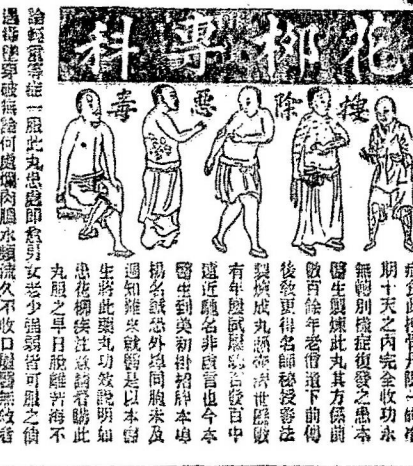 花柳專科
挍除惡毒
期十天之内完全收功永
無轉別樣症復發之患本
醫生製煉此丸其方係前
數百餘年老僧遺下前傳
後教更得名師秘授審法
製煉成丸懸壺濟世歷數
有年屢試屢驗百發百中
遠近馳名非敢言也今本
醫生到美初掛招牌本埠
揚名誠恐外埠同胞未及
週知難來就醫是以本醫
生將此藥丸功效說明如
患花柳疾注意請看購此
丸服之早日脫離苦海不
論輕重等症一服此丸患處即愈男女老少強弱皆可服之倘
遇
穿破無論何處爛肉膿水頻流久不收口屢醫無效者